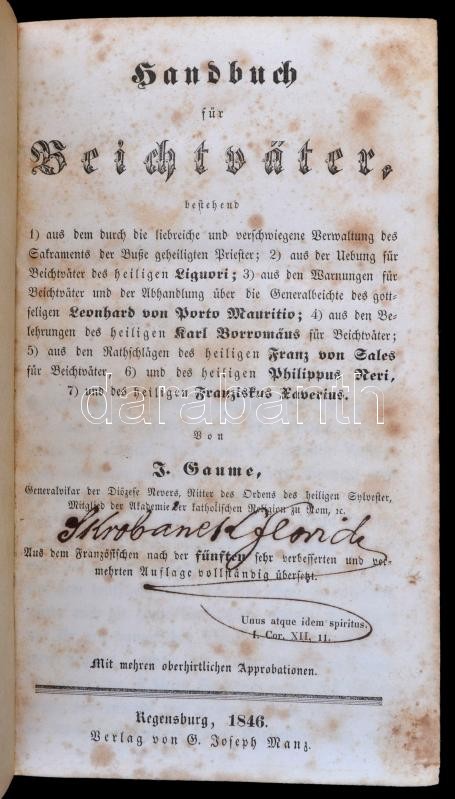 Handbuch
für
Beichtväter,
bestehend
1) aus dem durch die liebreiche und verschwiegene Verwaltung des
Sakraments der Buße geheiligten Priester; 2) aus der Uebung für
Beichtväter des heiligen Liguori; 3) aus den Warnungen für
Beichtväter und der Abhandlung über die Generalbeichte des gott-
seligen Leonhard von Porto Mauritio; 4) aus den Be-
lehrungen des heiligen Karl Borromäus für Beichtväter;
5) aus den Rathschlägen des heiligen Franz von Sales
für Beichtväter, 6) und des heiligen Philippus Neri,
7) und des heiligen Franziskus Xaverius.
darabanth
Von
J. Gaume,
Generalvikar der Diözese Nevers, Ritter des Ordens des heiligen Sylvester,
Mitglied der Akademie der katholischen Religion zu Rom, ꝛc.
Skrobanek Florid
Aus dem Französischen nach der fünften sehr verbesserten und ver-
mehrten Auflage vollständig übersetzt.
Unus atque idem spiritus.
I. Cor. XII, 11.
Mit mehren oberhirtlichen Approbationen.
Regensburg, 1846.
Verlag von G. Joseph Manz.